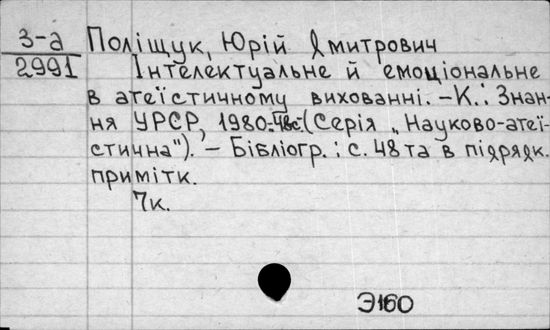 З-а
2991
Поліщук, Юрій Дмитрович
Інтелектуальне й емоціональне
в атеїстичному вихованні. – К.: Знан-
ня УРСР, 1980.-48с. (Серія „Науково-атеї-
стична"). – Бібліогр.: с. 48 та в підрядк.
примітк.
7к.
Э160